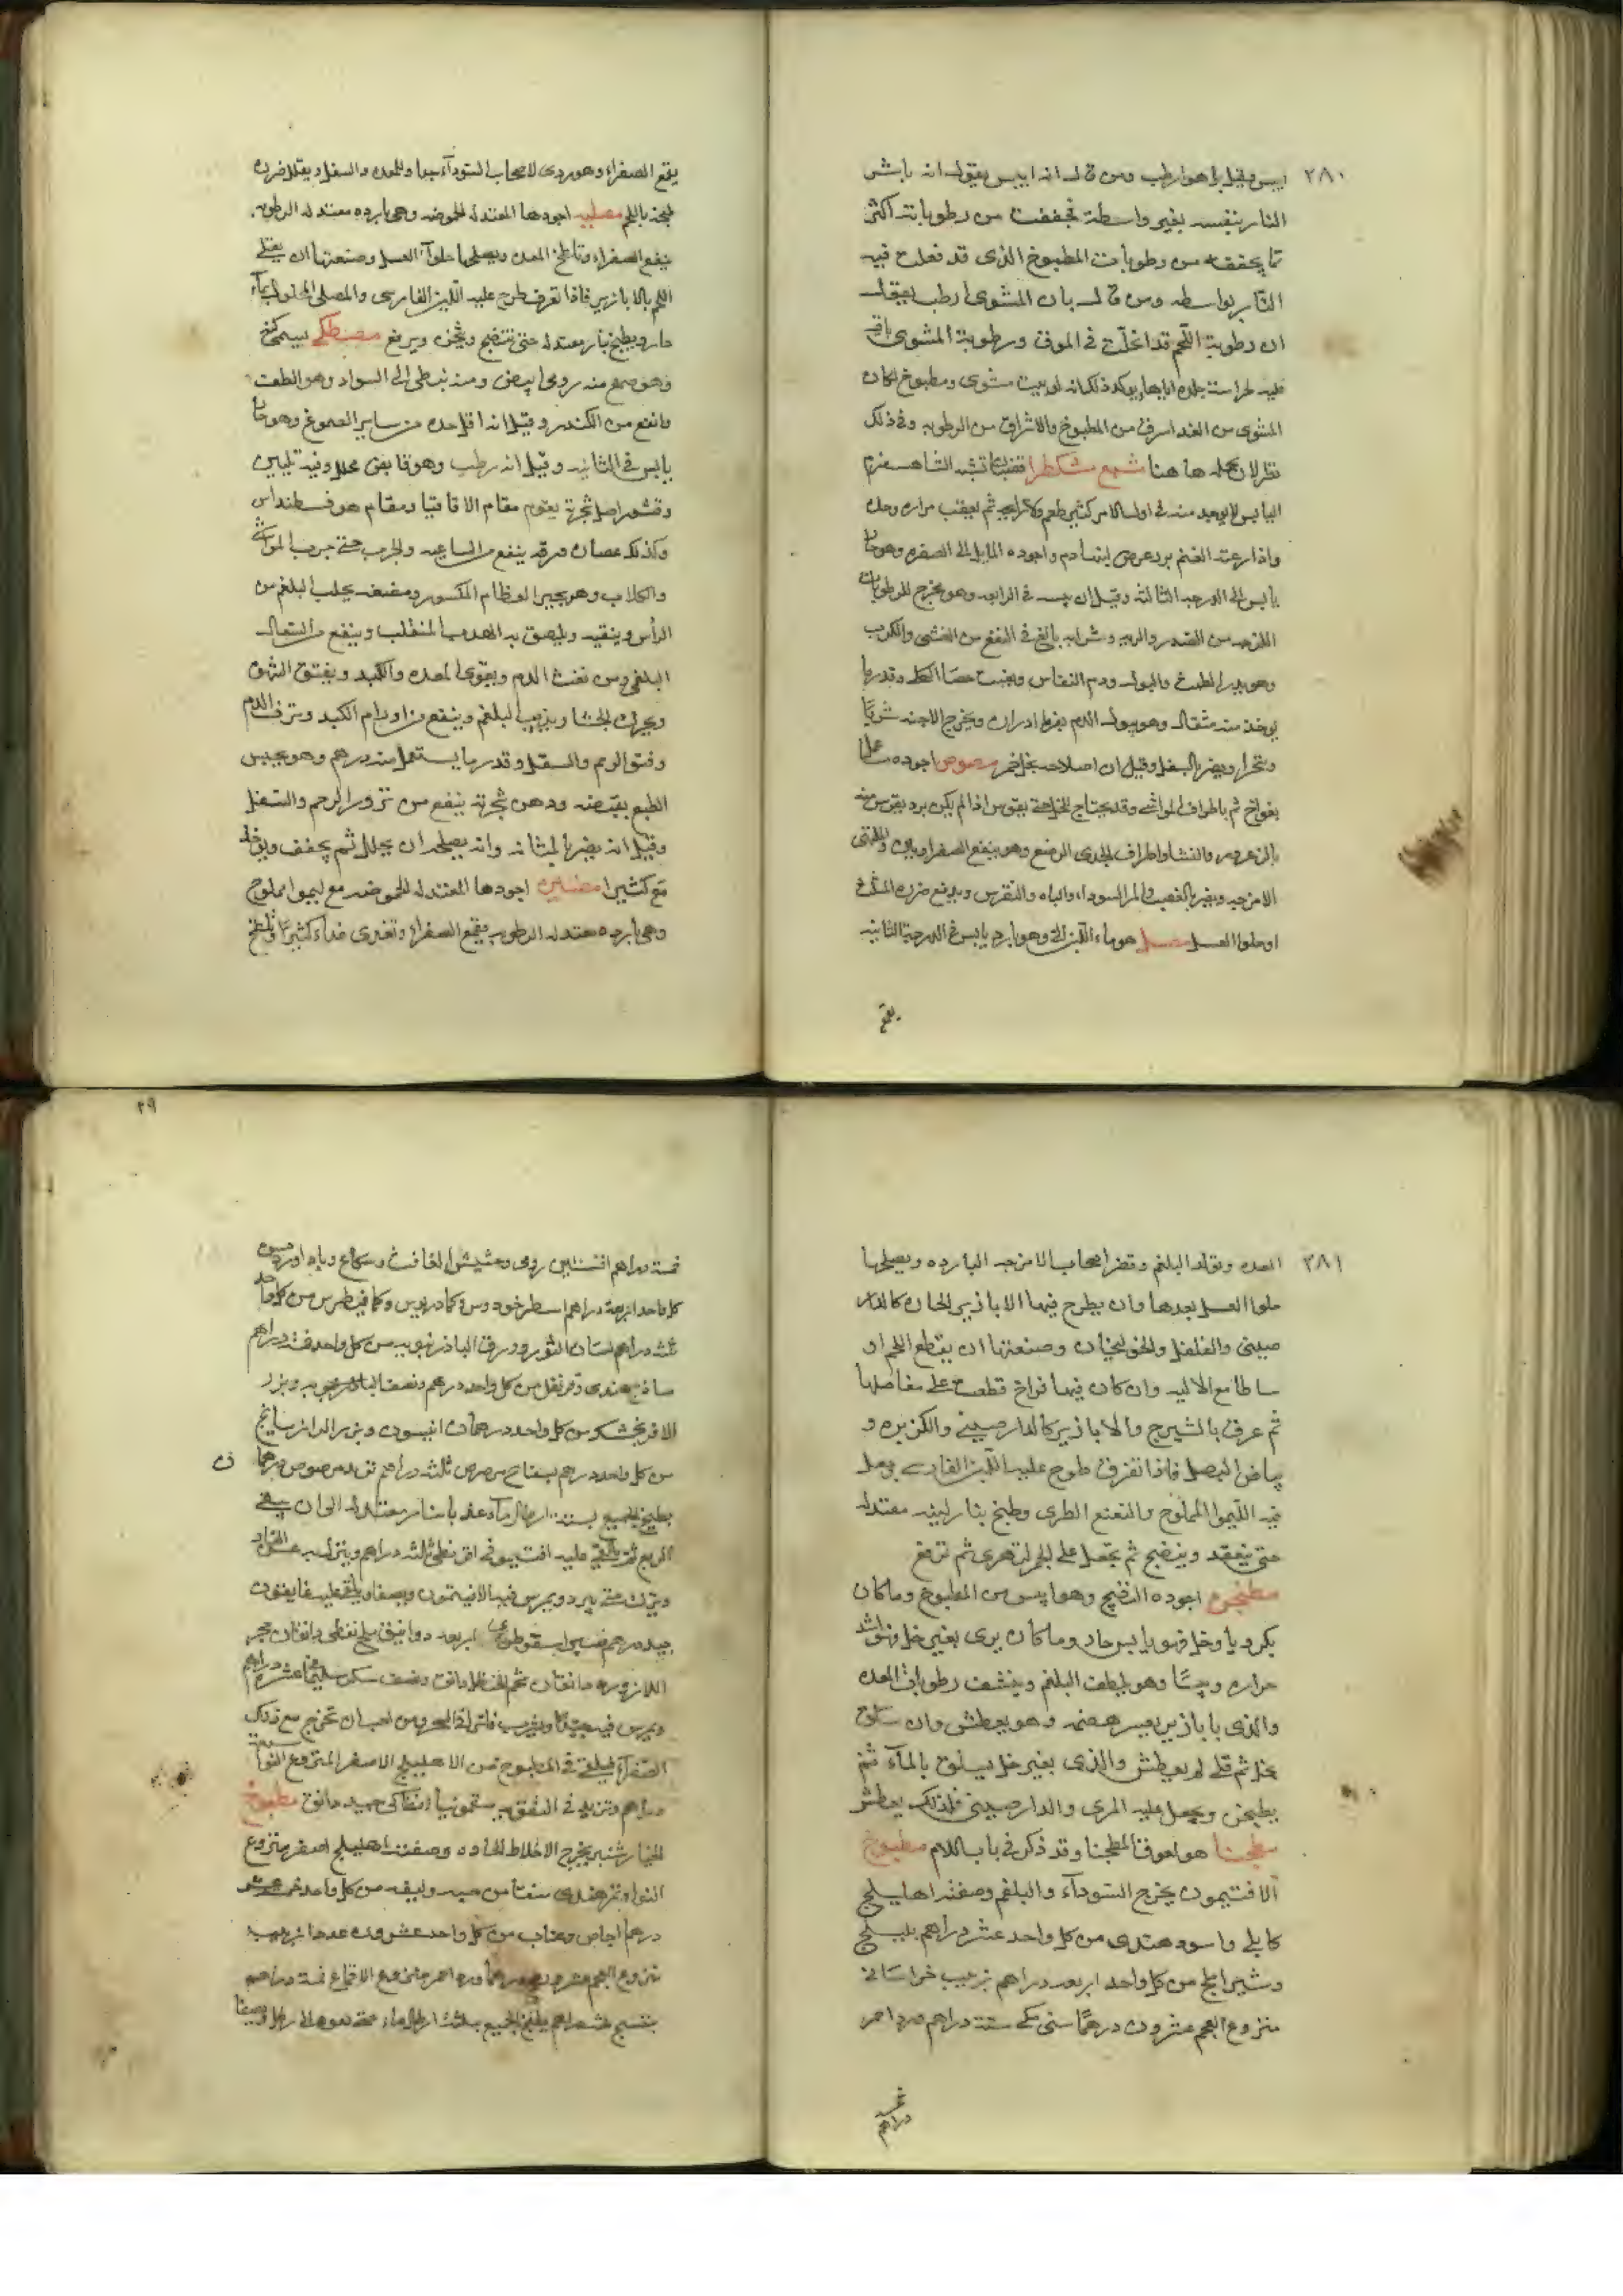 ٢٨٠
ايبس وقيل بل هو ارطب ومن قال انه ايبس يقول انه باشر
النار بنفسه بغير واسطة فجففت من رطوباته اكثر
مما يجففه من رطوبات المطبوخ الذى قد فعلت فيه
النار بواسطه ومن قال بان المشوى ارطب يقول
ان رطوبة اللحم قد انحلت فى المرق ورطوبة المشوى باقيه
فيه لحراسة جلده اياها يوكد ذلك انه لو بيت مشوى ومطبوخ لكان
المشوى من الغد اسرق من المطبوخ والاشراق من الرطوبه وفى ذلك
نظر لان محله ها هنا مشكطرا قضبان تشبه الشاهسفرم
اليابس لا يوجد منه فى اول الامر كثير طعم ولا رايحه ثم يعقب مراره وحده
واذا رعته الغنم بردعرض لبنها دم واجوده المايل الى الصفره وهو حار
يابس الى الدرجه الثالثه وقيل ان يبسه فى الرابعه وهو يخرج الرطوبات
اللزجه من الصدر والريه وشرابه بالغ فى النفع من الغشى والكرب
وهو يدر الطمث والبول ودم النفاس ويفتت حصا الكلى وقدر ما
يوخذ منه مثقال وهو يبول الدم بفرط ادراره ويخرج الاجنه شربا
وتحملا ويضر بالسفل وقيل ان اصلاحه بخل خمر مصوص اجوده ما عمل
بفراخ ثم باطراف المواشى وقد يحتاج
بالزعرور والنشا واطراف الجدى الرضع وهو ينفع الصفرا
الامزجه ويضر بالعصب والمر السوداء والباه والنقرس ويدفع ضرره
او حلوا العسل مصل هو ماء اللبن وهو بارد يابس فى الدرجة الثانيه
يقمع
يقمع الصفراء وهو ردى لاصحاب السودآء جدا وللمعده والسفل ويقلل ضرره
طبخه باللحم مصليه اجودها المعتدله الحموضه وهى بارده معتدله الرطوبه
ينفع الصفراء وتلطخ المعده ويصلحها حلوآء العسل وصنعتها ان يغلى
اللحم بالابازير فاذا تعرق طرح عليه اللبن الفارسى والمصل المحلول بمآء
حار ويطبخ بنار معتدله حتى تنضج ويثخن ويرفع مصطكى يسمى كنه
وهو صمع منه رومى ابيض ومنه نبطى الى السواد وهو الطف
وانفع من الكندر وقيل انه اقل حده من ساير الصموغ وهو حار
يابس فى الثانيه وقيل انه رطب وهو قابض محلل وفيه تليين
وقشور اصل شجرته يقوم مقام الاقاقيا ومقام هو فسطنداس
وكذلك عصارة ورقه ينفع من الساعيه والجرب حتى جرب المواشى
والكلاب وهو يجبر العظام المكسوره ومضغه يجلب البلغم من
الرأس وينقيه ويلصق به الهدب المنقلب وينفع من السعال
البلغمى ومن نفث الدم ويقوى المعده والكبد ويفتق الشهوه
ويحرك الجشا ويذيب البلغم وينفع من اورام الكبد ونزف الدم
وفتق الرحم والسفل وقدر ما يستعمل منه درهم وهو يحبس
الطبع بقبضه ودهن شجرته ينفع من نزو الرحم والسفل
وقيل انه يضر بالمثانه وانه يصلحه ان يحلل ثم يجفف ويوخذ
مع كثيرا مضيره اجودها المعتدله الحموضه مع ليموا مملوح
وهى بارده معتدله الرطوبه يقمع الصفراء وتغذى غداء كثيرا وتلطخ
٢٩
٢٨١
المعده وتولد البلغم وتضر اصحاب الامزجه البارده ويصلحها
حلوا العسل بعدها وان يطرح فيها الابازير الحاره كالدار
صينى والفلفل والخولنجان وصنعتها ان يقطع اللحم او
ساطا مع الاليه وان كان فيها فراخ قطعت على مفاصلها
ثم عرق بالشيرج والابازير كالدارصينى والكزبره و
بياض البصل فاذا تعرق طرح عليه اللبن الفارسى وجعل
فيه الليموا المملوح والنعنع الطرى وطبخ بنار لينه معتدله
حتى ينعقد وينضج ثم يجعل على الجمر لتهدى ثم ترفع
مطجن اجوده النضيج وهو ايبس من المطبوخ وما كان
بكرويا وخل فهو يابس حاد وما كان برى بغير خل فهو اشد
حراره ويبسا وهو يلطف البلغم وينشف رطوبات المعده
والذى بابازير يعسر هضمه وهو يعطش وان سلق
بخل ثم قلى لم يعطش والذى بغير خل يسلق بالمآء ثم
يطجن ويجعل عليه المرى والدارصينى فلذلك يعطش
مطحنا هو لعوق المطحنا وقد ذكر فى باب اللام مطبوخ
الافتيمون يخرج السودآء والبلغم وصفته اهليلج
كابلى واسود هندى من كل واحد عشر دراهم بليلج
وشير املج من كل واحد اربعه دراهم زبيب خراسانى
منزوع العجم عشرون درهما سنى مكى ستة دراهم ورد احمر
خمسه دراهم
خمسة دراهم افسنتين رومى وحشيش الغافث
كل واحد اربعة دراهم اسطوخودوس وكمادريوس وكمافيطوس من كل واحد
ثلثه دراهم لسان الثور وورق الباذرنجويه من كل واحد خمسة دراهم
ساذج هندى وقرنفل من كل واحد درهم ونصف وبزر
الافرنجشك من كل واحد درهمان انيسون وبزر الرازيانج
من كل واحد درهم بسفايج مرضوض ثلثة دراهم
يطبخ الجميع بستة ارطال مآء عذب بنار معتدله الى ان يبقى
الربع ثم يلقى عليه افتيمون اقريطى ثلثه دراهم وينزل عن النار
ويترك حتى يبرد ويمرس فيه الافتيمون ويصفا ويلقى عليه غاريقون
جيد درهم صبر اسقوطرى اربعه دوانيق ملح نفطى دانقان حجر
اللازورد دانقان شحم الحنظل دانق ونصف سكر سليمانى عشره دراهم
ويمرس فيه جيدا ويشرب فاترا فى المحرور من احب ان تخرج مع ذلك
الصفرآء فيلقى فى المطبوخ من الاهليلج الاصفر المنزوع النوا سبعة
دراهم وتزيد فى سقمونيا انطاكى جيد دانق مطبوخ
الخيار شنبر يخرج الاخلاط الحاده وصفته اهليلج اصفر منزوع
النوا وتمر هندى منقا من حبه وليفه من كل واحد خمسة عشر
درهما اجاص وعناب من كل واحد عشرون عددا زبيب
منزوع العجم ورد احمر منزوع الاقماع خمسة دراهم
بنفسج خمسه دراهم يطبخ الجميع بثلثه ارطال مآء حتى يعود الى رطل ويصفا